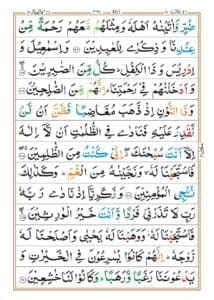 ضُرٍّ وَّاٰتَيْنٰهُ اَهْلَهٗ وَمِثْلَهُمْ مَّعَهُمْ رَحْمَةً مِّنْ
عِنْدِنَا وَذِكْرٰى لِلْعٰبِدِيْنَ وَاِسْمٰعِيْلَ وَ
اِدْرِيْسَ وَذَا الْكِفْلِ كُلٌّ مِّنَ الصّٰبِرِيْنَ
وَاَدْخَلْنٰهُمْ فِيْ رَحْمَتِنَا اِنَّهُمْ مِّنَ الصّٰلِحِيْنَ
وَذَا النُّوْنِ اِذْ ذَّهَبَ مُغَاضِبًا فَظَنَّ اَنْ لَّنْ
نَّقْدِرَ عَلَيْهِ فَنَادٰى فِي الظُّلُمٰتِ اَنْ لَّآ اِلٰهَ
اِلَّآ اَنْتَ سُبْحٰنَكَ اِنِّيْ كُنْتُ مِنَ الظّٰلِمِيْنَ
فَاسْتَجَبْنَا لَهٗ وَنَجَّيْنٰهُ مِنَ الْغَمِّ وَكَذٰلِكَ
نُـْۨجِي الْمُؤْمِنِيْنَ وَزَكَرِيَّآ اِذْ نَادٰى رَبَّهٗ
رَبِّ لَا تَذَرْنِيْ فَرْدًا وَّاَنْتَ خَيْرُ الْوٰرِثِيْنَ
فَاسْتَجَبْنَا لَهٗ وَوَهَبْنَا لَهٗ يَحْيٰى وَاَصْلَحْنَا لَهٗ
زَوْجَهٗ اِنَّهُمْ كَانُوْا يُسٰرِعُوْنَ فِي الْخَيْرٰتِ وَ
يَدْعُوْنَنَا رَغَبًا وَّرَهَبًا وَكَانُوْا لَنَا خٰشِعِيْنَ